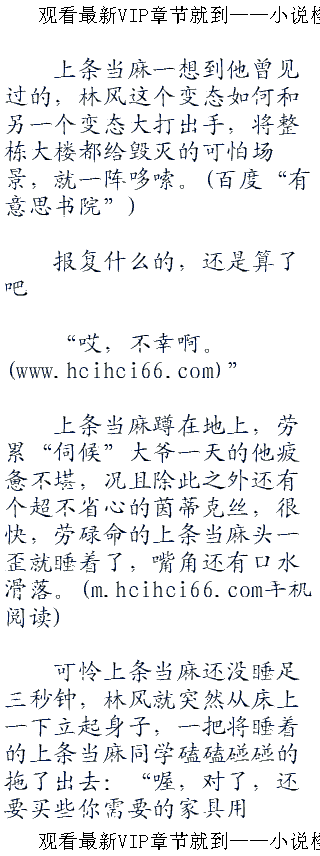 观看最新VIP章节就到——小说
上条当麻一想到他曾见
过的，林风这个变态如何和
另一个变态大打出手，将整
栋大楼都给毁灭的可怕场
景，就一阵哆嗦。(百度“有
意思书院”)
报复什么的，还是算了
吧
“哎，不幸啊。
(www.hcihci66.com)”
上条当麻蹲在地上，劳
累“伺候”大爷一天的他疲
惫不堪，况且除此之外还有
个超不省心的茵蒂克丝，很
快，劳碌命的上条当麻头一
歪就睡着了，嘴角还有口水
滑落。(m.hcihci66.com手机
阅读)
可怜上条当麻还没睡足
三秒钟，林风就突然从床上
一下立起身子，一把将睡着
的上条当麻同学磕磕碰碰的
拖了出去：“喔，对了，还
要买些你需要的家具用
观看最新VIP章节就到——小说